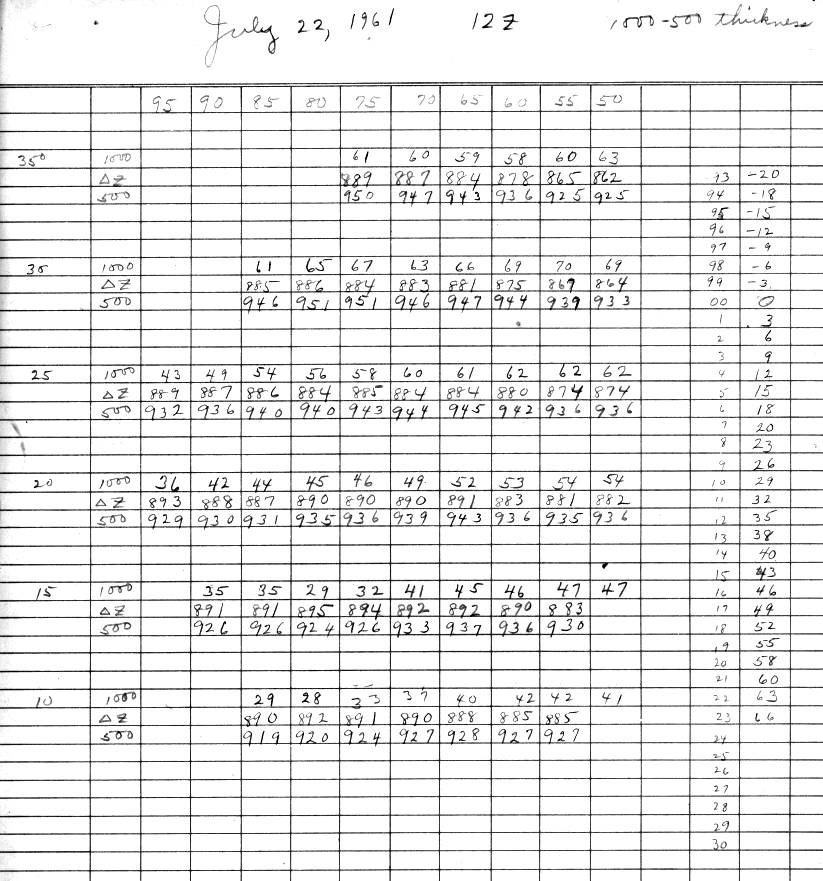 July 22, 1961 12Z 1000-500 thickness
95 90 85 80 75 70 65 60 55 50
350 1000 61 60 59 58 60 63
ΔZ 889 887 884 878 865 862 93 -20
500 950 947 943 936 925 925 94 -18
95 -15
96 -12
97 -9
30 1000 61 65 67 63 66 69 70 69 98 -6
ΔZ 885 886 884 883 881 875 869 864 99 -3
500 946 951 951 946 947 944 939 933 00 0
1 3
2 6
3 9
25 1000 43 49 54 56 58 60 61 62 62 62 4 12
ΔZ 889 887 886 884 885 884 884 880 874 874 5 15
500 932 936 940 940 943 944 945 942 936 936 6 18
7 20
8 23
9 26
20 1000 36 42 44 45 46 49 52 53 54 54 10 29
ΔZ 893 888 887 890 890 890 891 883 881 882 11 32
500 929 930 931 935 936 939 943 936 935 936 12 35
13 38
14 40
15 43
15 1000 35 35 29 32 41 45 46 47 47 16 46
ΔZ 891 891 895 894 892 892 890 883 17 49
500 926 926 924 926 933 937 936 930 18 52
19 55
20 58
21 60
10 1000 29 28 33 37 40 42 42 41 22 63
ΔZ 890 892 891 890 888 885 885 23 66
500 919 920 924 927 928 927 927 24
25
26
27
28
29
30